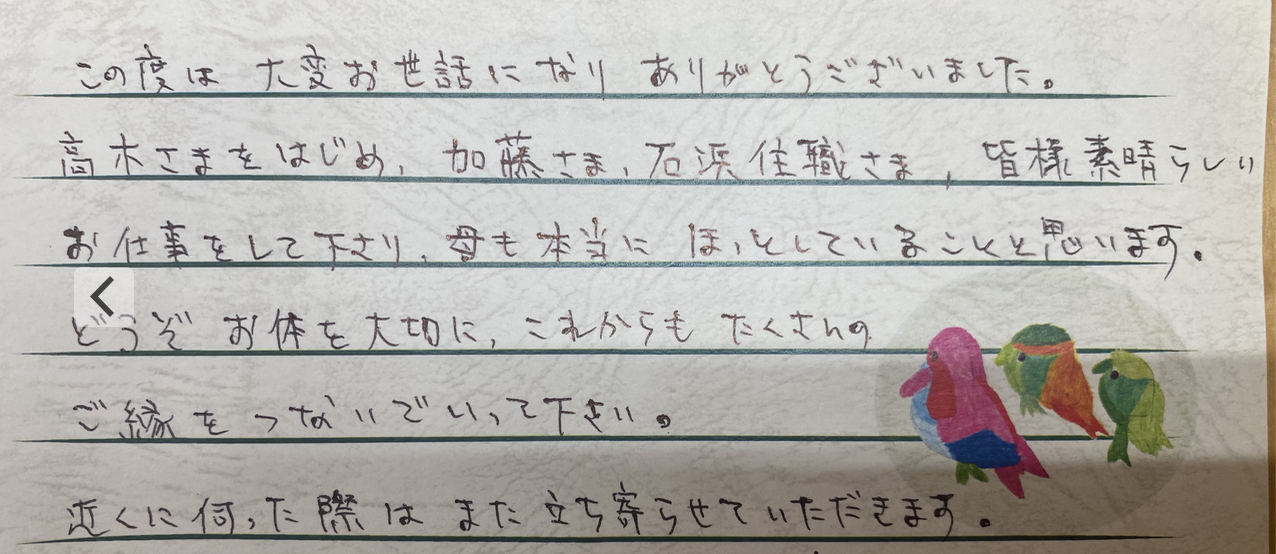 この度は 大変お世話になり ありがとうございました。
高木さまをはじめ、加藤さま、石浜住職さま、皆様素晴らしい
お仕事をして下さり、母も本当に ほっとしていることと思います。
どうぞ お体を大切に、これからも たくさんの
ご縁をつないでいって下さい。
近くに伺った際は また 立ち寄らせていただきます。